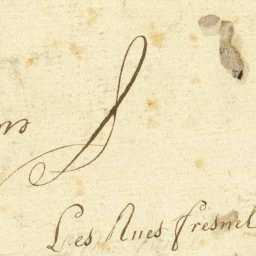 Les Rues fresnel